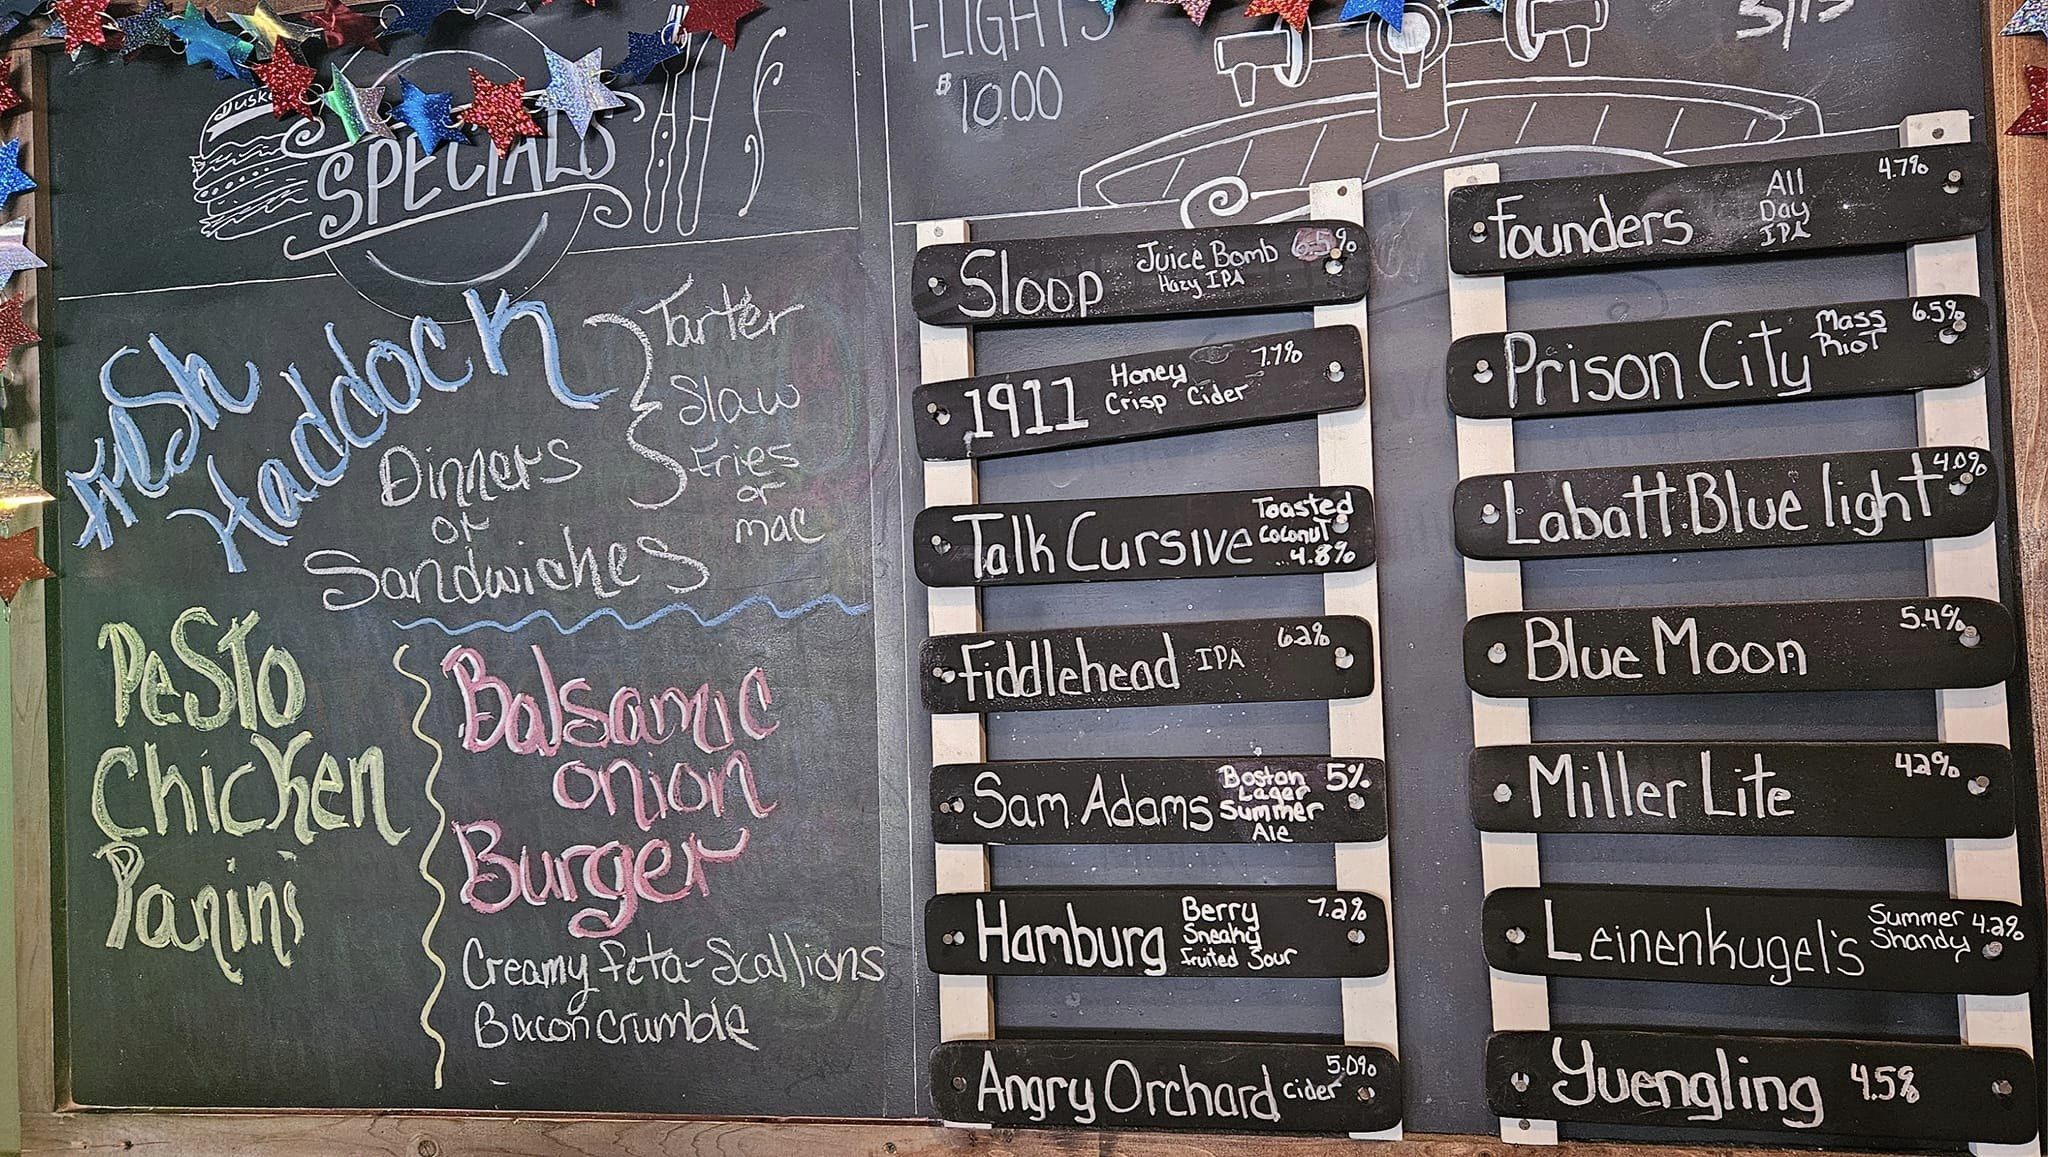 SPECIALS
Fresh
Haddock
Dinners
or
Sandwiches
Tarter
Slaw
Fries
or
mac
Pesto
Chicken
Panini
Balsamic
onion
Burger
Creamy feta-Scallions
Bacon crumble
FLIGHTS
$10.00
5/15
Sloop Juice Bomb 6.5%
Hazy IPA
1911 Honey 7.7%
Crisp Cider
Talk Cursive Toasted
Coconut
4.8%
Fiddlehead IPA 6.2%
Sam Adams Boston 5%
Lager
Summer
Ale
Hamburg Berry 7.2%
Sneaky
Fruited Sour
Angry Orchard cider 5.0%
Founders All 4.7%
Day
IPA
Prison City Mass 6.5%
Riot
Labatt Blue light 4.0%
Blue Moon 5.4%
Miller Lite 42%
Leinenkugel's Summer 4.2%
Shandy
Yuengling 4.5%